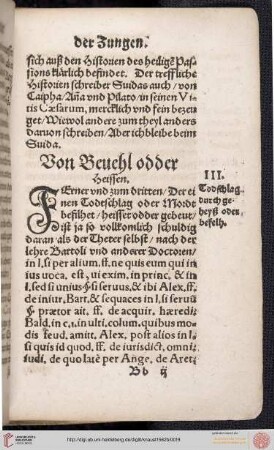 der Zungen.
sich auß den Historien des heilige Pas-
sions klärlich befindet. Der treffliche
Historien schreiber Suidas auch / von
Caipha / Aña vnd Pilato / in seinen Vi-
tis Cæsarum, mercklich vnd fein bezeu-
get / Wiewol andere zum theyl anders
daruon schreiben / Aber ich bleibe beim
Suida.
Von Beuehl odder
Heissen.
III.
Todschlag
durch ge-
heyß oder
befelh.
FErner vnd zum dritten / Der ei-
nen Todschlag oder Mordt
befilhet / heisset odder gebeut /
ist ja so volkomlich schuldig
daran als der Theter selbst / nach der
lehre Bartoli vnd anderer Doctoren /
in l. si per alium. ff. ne quis eum qui in
ius uoca. est, ui exim. in princ. & in
l. sed si unius §. si seruus, & ibi Alex. ff.
de iniur, Bart. & sequaces in l. si seruũ
§. prætor ait. ff. de acquir. hæredi:
Bald. in c. 1. in ulti. colum. quibus mo-
dis feud. amitt, Alex. post alios in l.
si quis id quod. ff. de iurisdict. omni:
iudi, de quo latè per Ange. de Areti
Bb ij